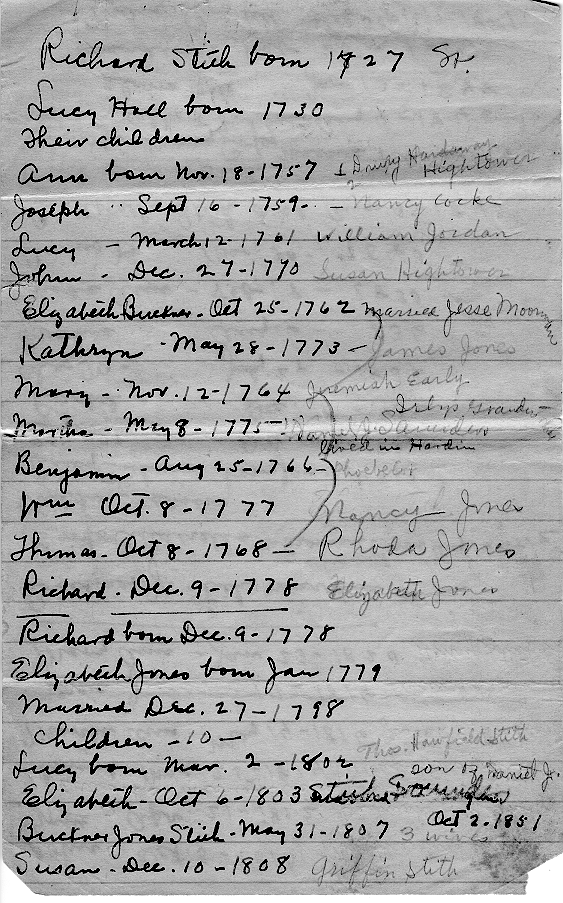 Richard Stith born 1727 Sr.
Lucy Hall born 1730
Their children
Ann born Nov. 18-1757 Drury Hardaway Hightower
Joseph " Sept 16-1759. - Nancy Cocke
Lucy - March 12-1761 William Jordan
John - Dec. 27-1770 Susan Hightower
Elizabeth Buckner - Oct 25-1762 married Jesse Moorman
Kathryn - May 28-1773 - James Jones
Mary - Nov. 12-1764 Jeremiah Early
Irbys Grand-
Martha - May 8-1775 - Daniel J. Saunders
lived in Hardin
Benjamin - Aug 25-1766 - Phoebe
Wm Oct. 8-1777 Nancy Jones
Thomas - Oct 8-1768 - Rhoda Jones
Richard - Dec. 9-1778 Elizabeth Jones
Richard born Dec. 9-1778
Elizabeth Jones born Jan 1779
Married Dec. 27-1798
Children -10-
Thos. Hawfield Stith
Lucy born Mar. 2-1802 son of Daniel J.
Elizabeth - Oct 6-1803 Stith
Buckner Jones Stith - May 31-1807 3 wives Oct 2. 1851
Susan - Dec. 10-1808 Griffin Stith